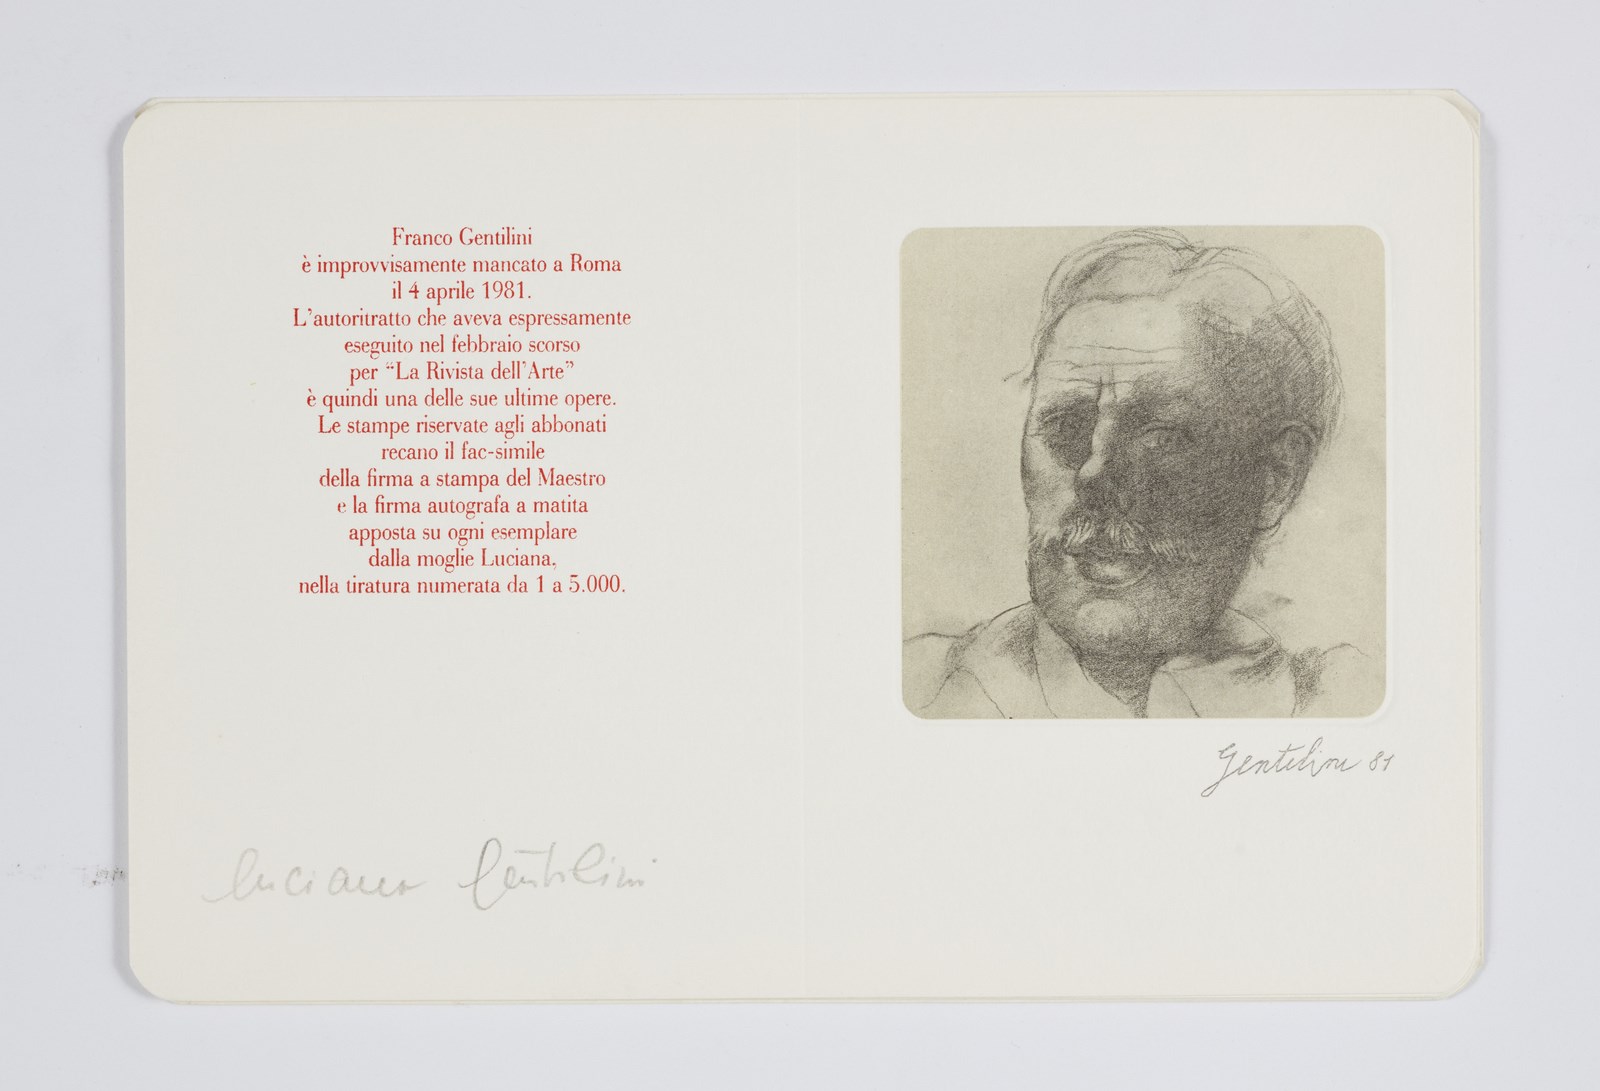 Franco Gentilini
è improvvisamente mancato a Roma
il 4 aprile 1981.
L'autoritratto che aveva espressamente
eseguito nel febbraio scorso
per “La Rivista dell'Arte”
è quindi una delle sue ultime opere.
Le stampe riservate agli abbonati
recano il fac-simile
della firma a stampa del Maestro
e la firma autografa a matita
apposta su ogni esemplare
dalla moglie Luciana,
nella tiratura numerata da 1 a 5.000.
Luciana Gentilini
Gentilini 81